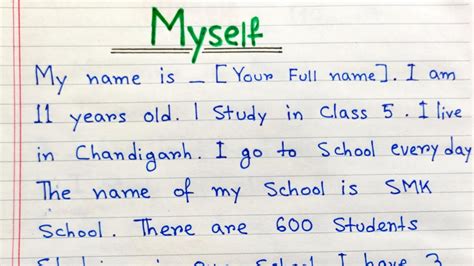 Myself
My name is _ [Your Full name]. I am
11 years old. I Study in Class 5. I live
in Chandigarh. I go to School every day
The name of my School is SMK
School. There are 600 Students
I have 3